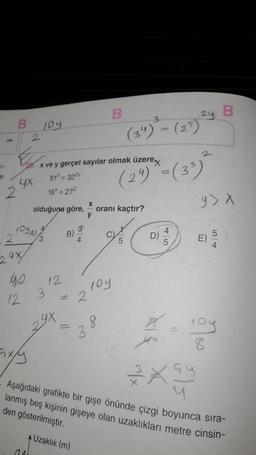 B 10y B 2y B
2
(3⁴)³ = (2⁵)
x ve y gerçel sayılar olmak üzere,
81³ = 32²ʸ
16ˣ = 27²
(2⁴) = (3³)²
2 4x
olduğuna göre, x/y oranı kaçtır?
y > x
A) 4/3 B) 3/4 C) 1/5 D) 4/5 E) 5/4
2 10y
2 4x
40 12
12 3 = 2 10y
2 4x = 3 8
= 10y/8
Aşağıdaki grafikte bir gişe önünde çizgi boyunca sıra-
lanmış beş kişinin gişeye olan uzaklıkları metre cinsin-
den gösterilmiştir.
Uzaklık (m)